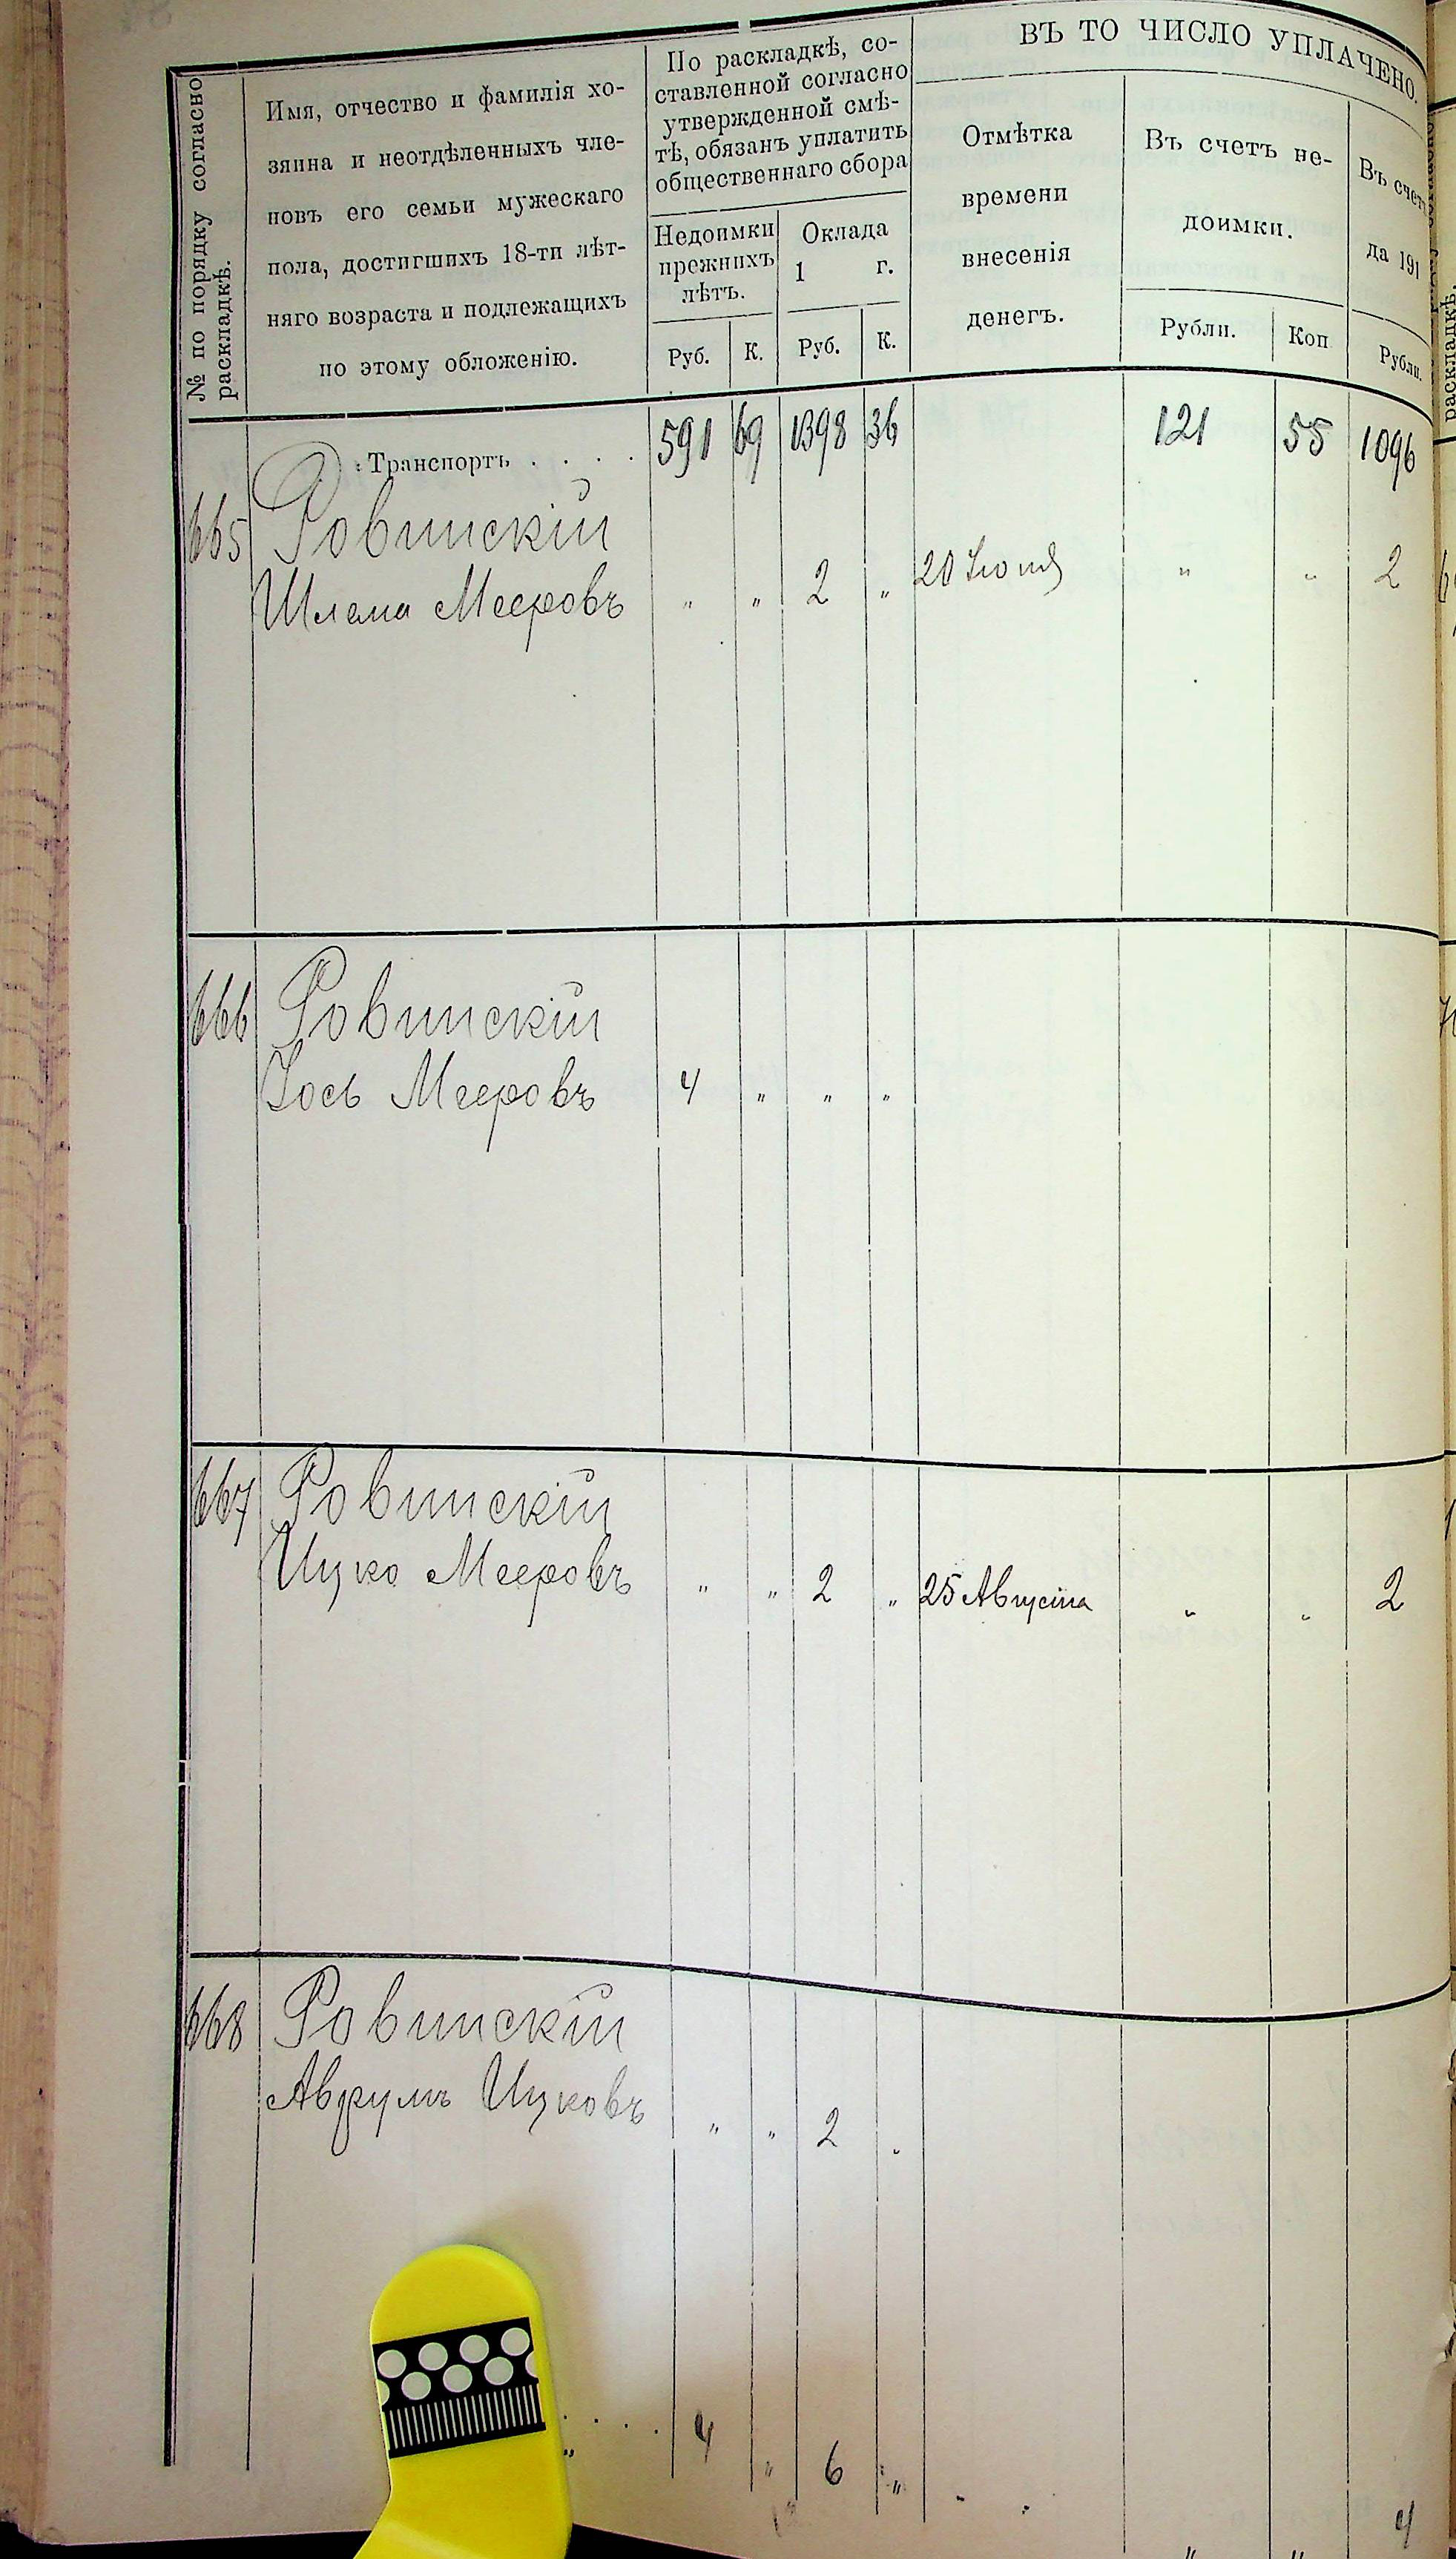 № по порядку согласно
раскладкѣ.
Имя, отчество и фамилія хо-
зяина и неотдѣленныхъ чле-
новъ его семьи мужескаго
пола, достигшихъ 18-ти лѣт-
няго возраста и подлежащихъ
по этому обложенію.
По раскладкѣ, со-
ставленной согласно
утвержденной смѣ-
тѣ, обязанъ уплатить
общественнаго сбора
Недоимки
прежнихъ
лѣтъ.
Оклада
1 г.
Руб. К. Руб. К.
ВЪ ТО ЧИСЛО УПЛАЧЕНО.
Отмѣтка
времени
внесенія
денегъ.
Въ счетъ не-
доимки.
Рубли. Коп
Въ счет
да 191
Рубли.
Транспортъ . . . . 591 69 1398 36 121 55 1096
665 Ровинскій
Шлема Мееровъ " " 2 " 20 Іюня " " 2
666 Ровинскій
Іось Мееровъ 4 " " "
667 Ровинскій
Ицко Мееровъ " " 2 " 25 Августа " " 2
668 Ровинскій
Аврумъ Ицковъ " " 2 "
4 " 6 " " " 4
раскладкѣ.